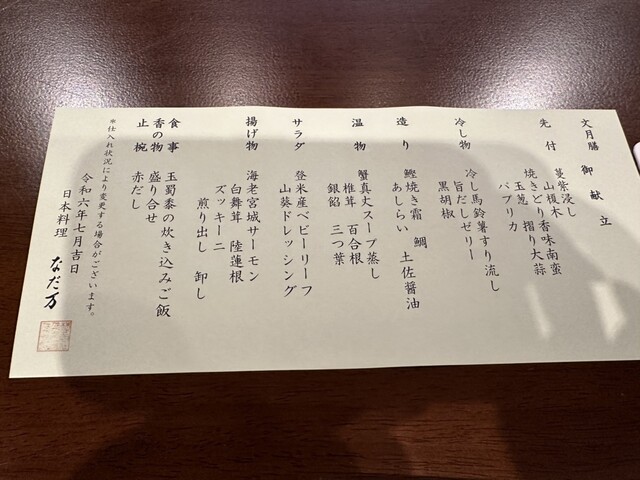 文月膳 御献立
先付 蔓紫浸し
山榎木
焼きどり香味南蛮
玉葱 摺り大蒜
パプリカ
冷し物 冷し馬鈴薯すり流し
旨だしゼリー
黒胡椒
造り 鰹焼き霜 鯛 土佐醤油
あしらい
温物 蟹真丈スープ蒸し
椎茸 百合根
銀餡 三つ葉
サラダ 登米産ベビーリーフ
山葵ドレッシング
揚げ物 海老宮城サーモン
白舞茸 陸蓮根
ズッキーニ
煎り出し 卸し
食事 玉蜀黍の炊き込みご飯
香の物 盛り合せ
止椀 赤だし
※仕入れ状況により変更する場合がございます。
令和六年七月吉日
日本料理 なだ万